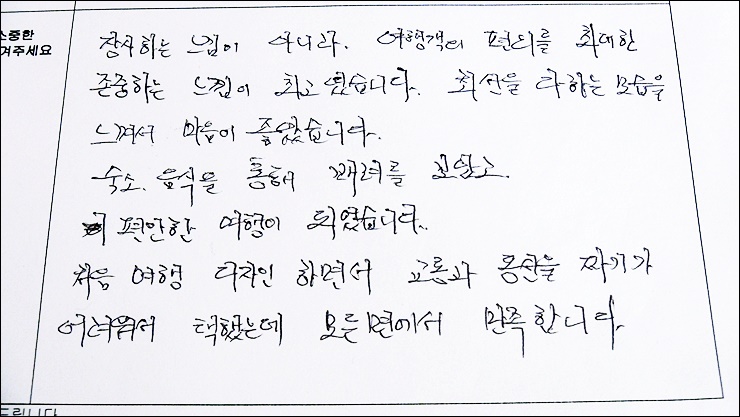 소중한
겨주세요
장사하는 느낌이 아니라. 여행객의 편의를 최대한
존중하는 느낌이 최고 였습니다. 최선을 다하는 모습을
느껴서 마음이 좋았습니다.
숙소. 음식을 통해 배려를 보았고.
편안한 여행이 되었습니다.
처음 여행 디자인 하면서 교통과 동선을 짜기가
어려워서 택했는데 모든면에서 만족합니다.
드립니다